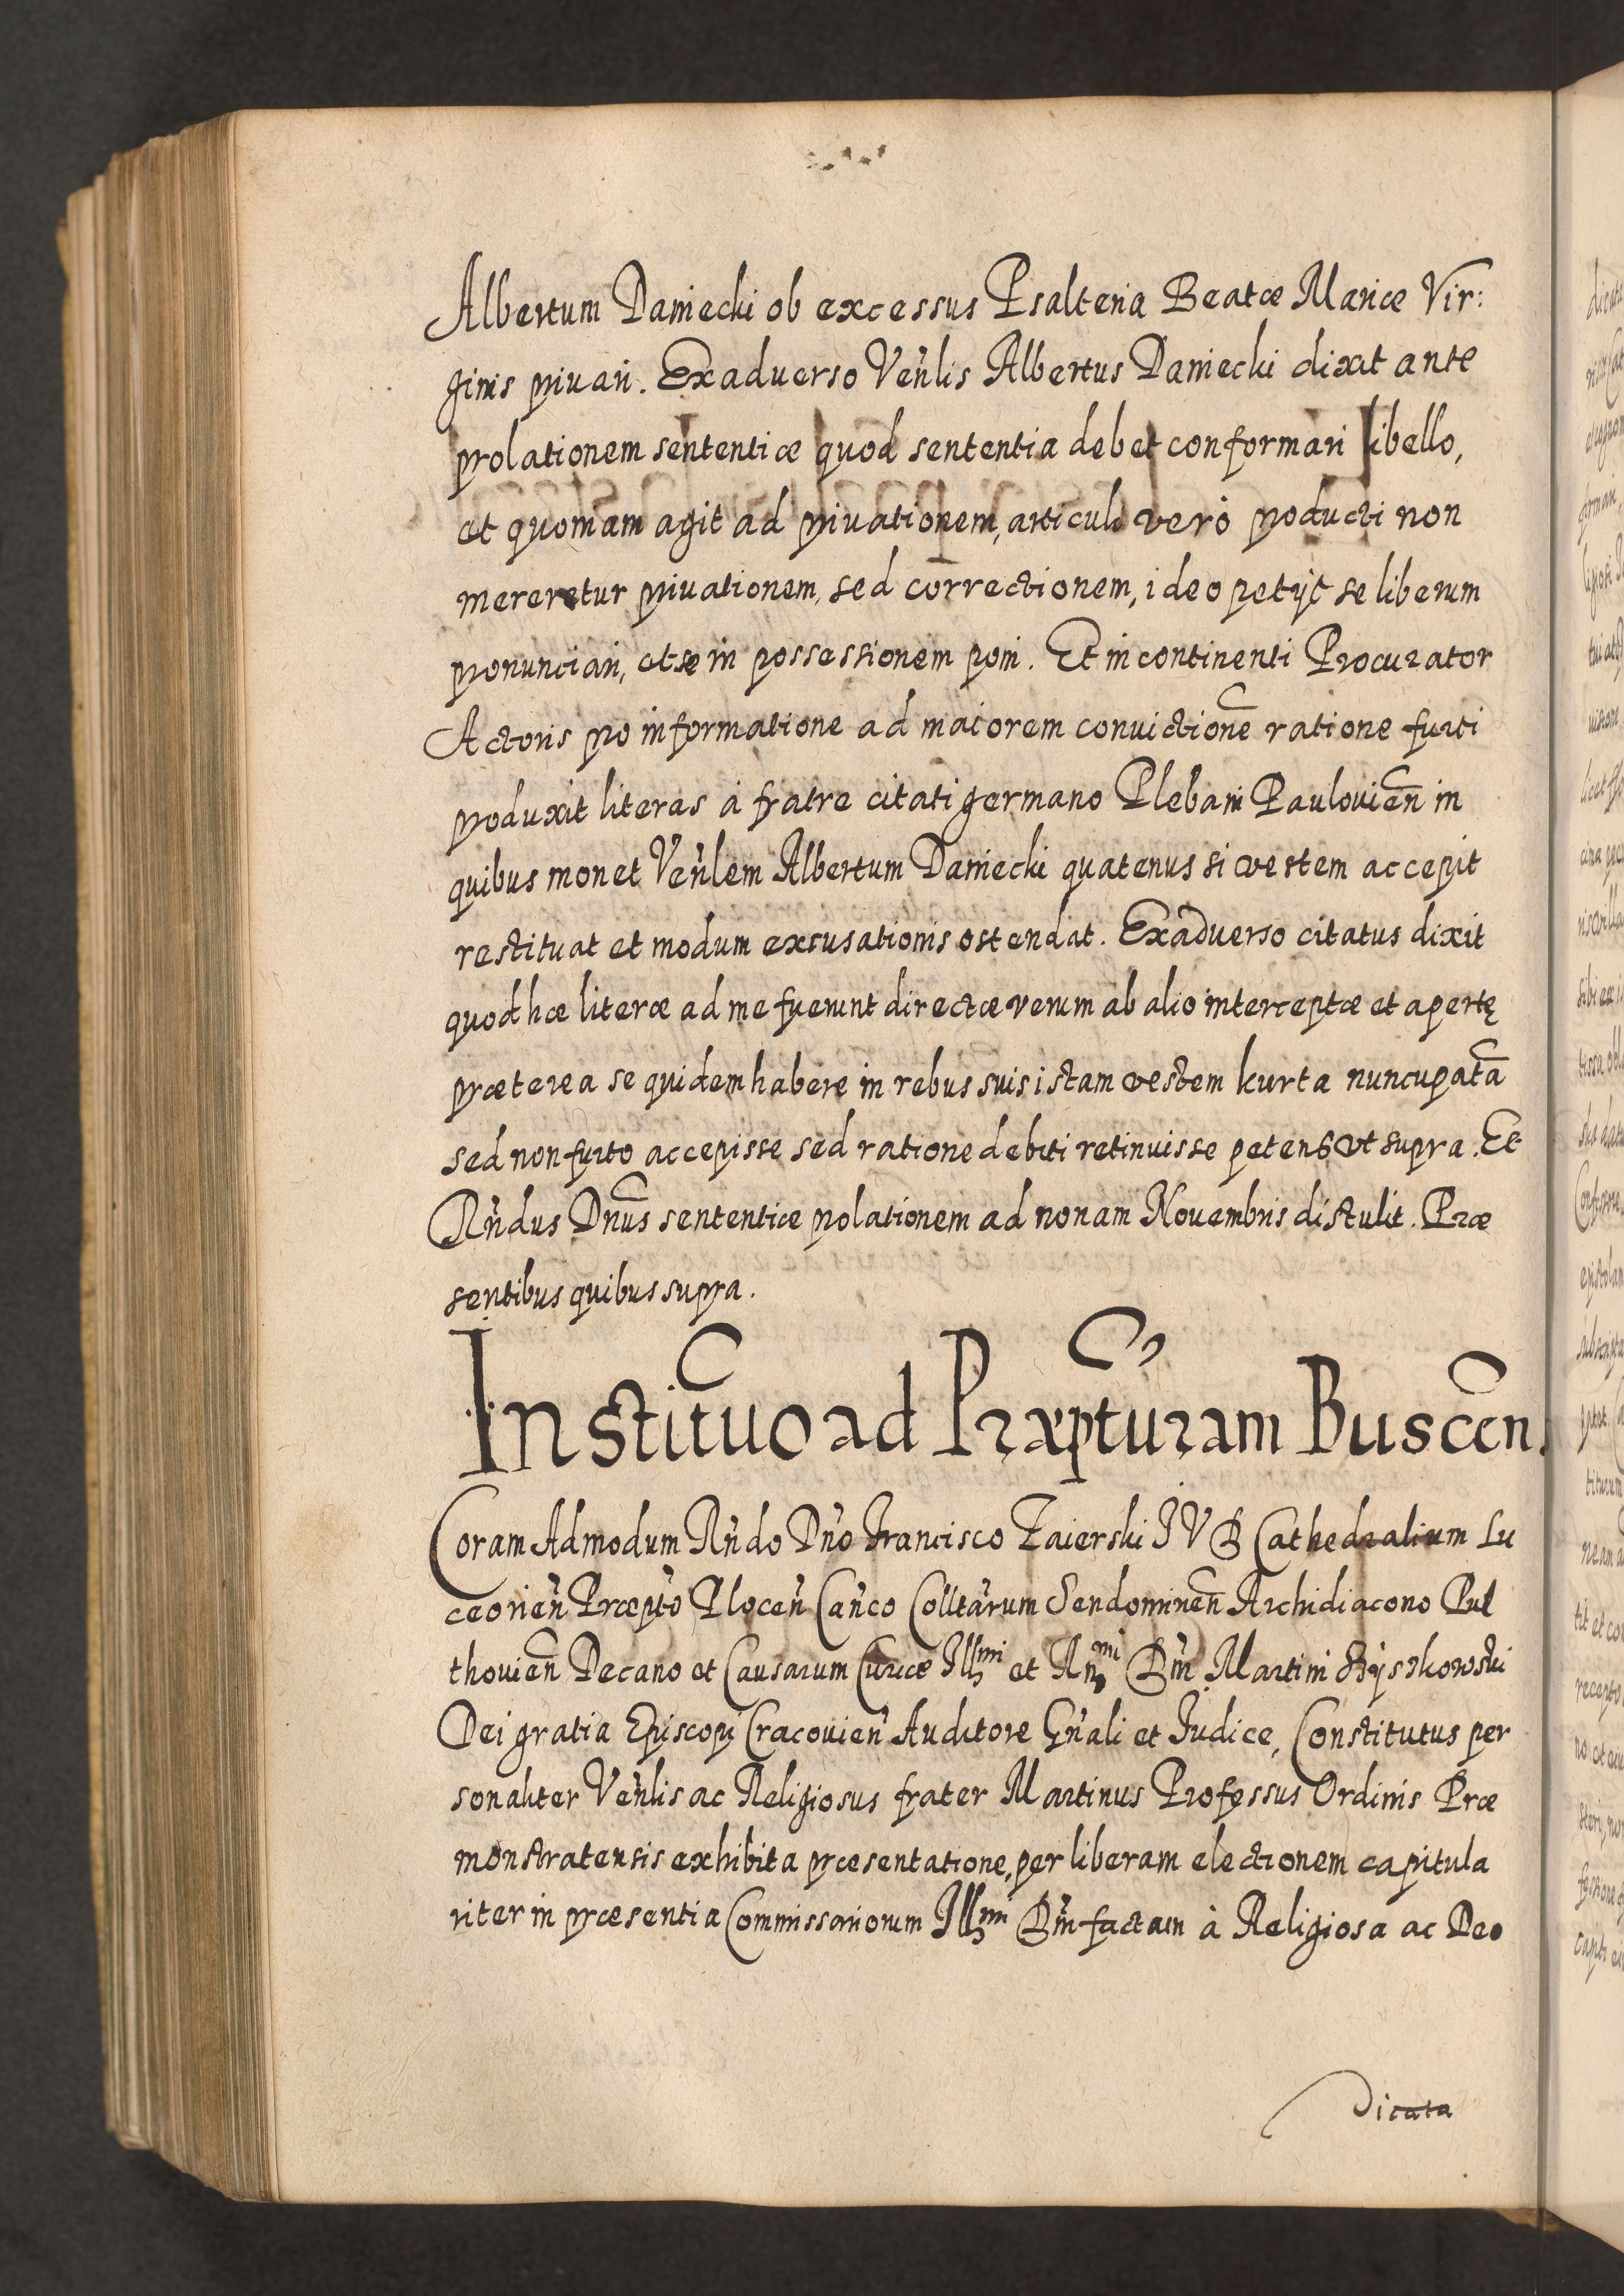 Albertum Daniecki ob excessus Psalteria Beatæ Mariæ Vir:
ginis privari. Exaduerso Veńlis Albertus Daniecki dixit ante
prolationem sententiæ quod sententia debet conformari libello,
et quoniam agit ad priuationem, articuli verò producti non
mereretur priuationem, sed correctionem, ideo petijt se liberum
pronunciari, et se in possessionem poni. Et incontinenti Procurator
Actoris pro informatione ad maiorem convictionẽ ratione furti
produxit literas à fratre citati germano Plebani Paulouieñ in
quibus monet Veńlem Albertum Daniecki quatenus si vestem accepit
restituat et modum excusationis ostendat. Exaduerso citatus dixit
quod hæ literæ ad me fuerunt directæ verum ab alio interceptæ et apertę
præterea se quidem habere in rebus suis istam vestem kurta nuncupatã
sed non furto accepisse sed ratione debiti retinuisse petens vt supra. Et
Rńdus Dnus sententiæ prolationem ad nonam Nouembris distulit. Præ
sentibus quibus supra.
Institũo ad Præpturam Buscen.
Coram Admodum Rńdo Dńo Francisco Zaierski I V D Cathedralium Lu
ceorień Præpto Plocen Cańco Colltarum Sendomireñ Archidiacono Pul
thouień Decano et Causarum Curiæ Illmi et Rnmi Dni Martini Szyszkowski
Dei gratia Episcopi Cracouień Auditore Gńali et Iudice, Constitutus per
sonaliter Veńlis ac Religiosus frater Martinus Professus Ordinis Præ
monstratensis exhibita præsentatione, per liberam electionem capitula
riter in præsentia Commissariorum Illmi Dni factam à Religiosa ac Deo
Dicata